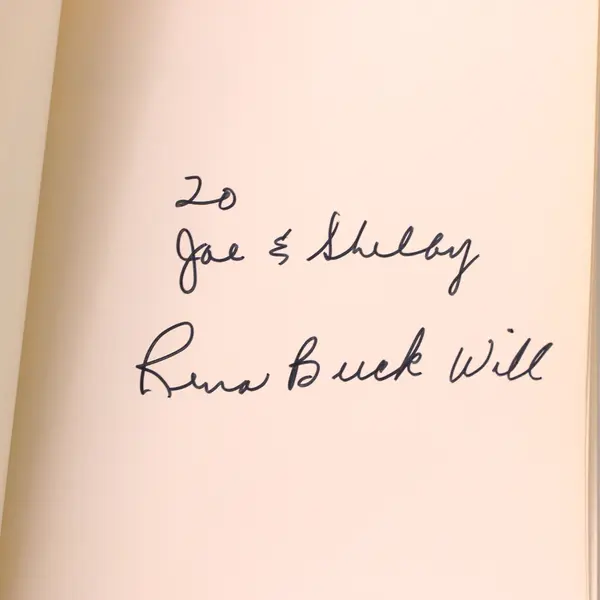 To
Joe & Shelby
Rena Buck Will